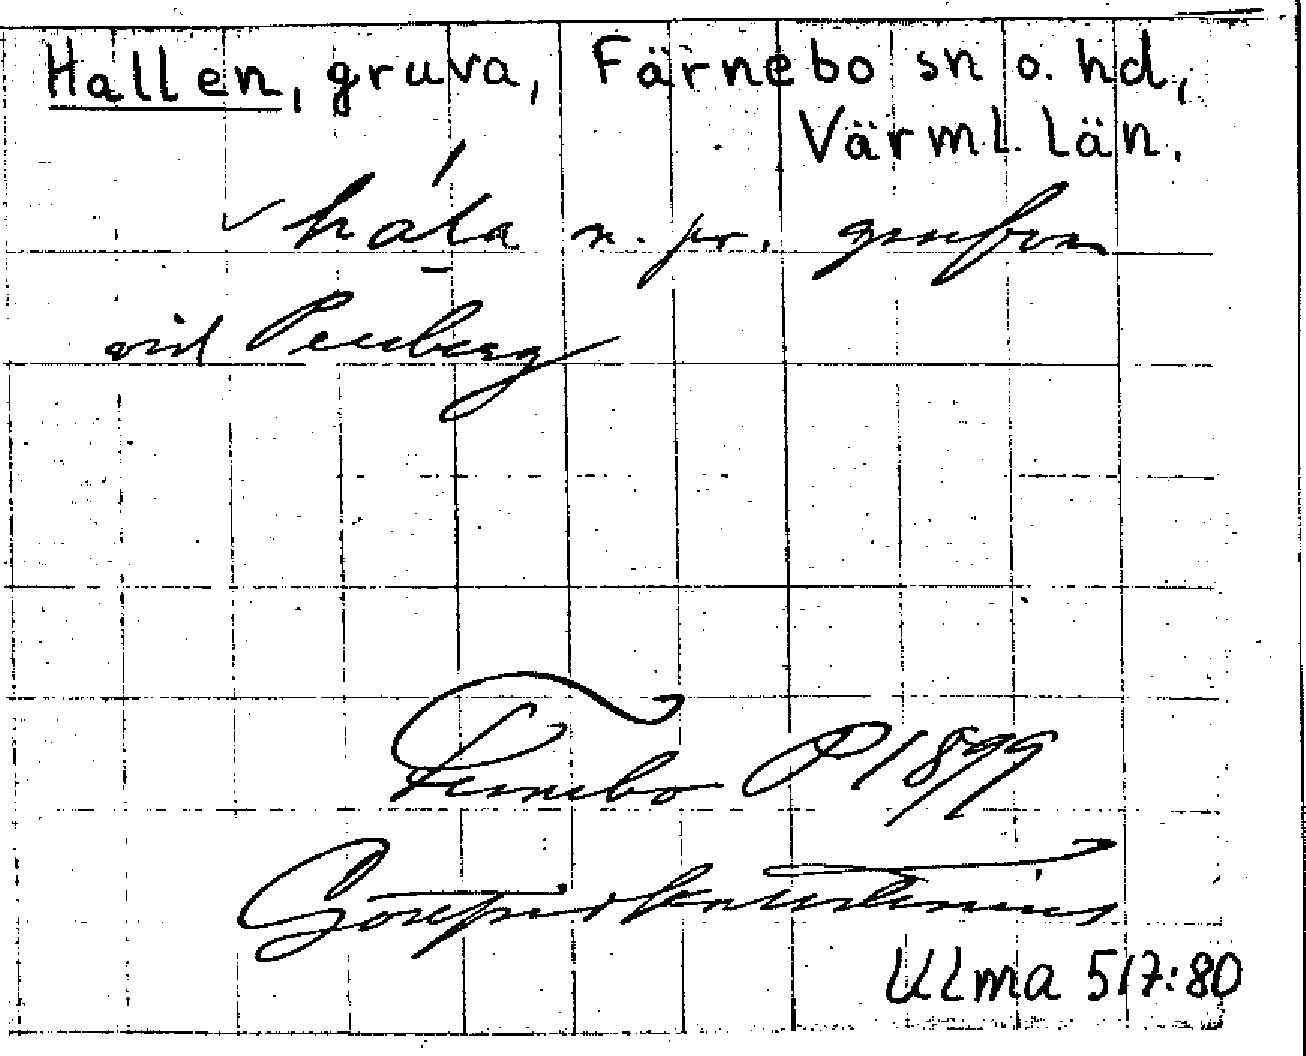 Hallen, gruva, Färnebo sn o. hd,
Värml. län.
hala n. pr. grufvan
vid Persberg
Fernebo P 1899
Ulma 517:80